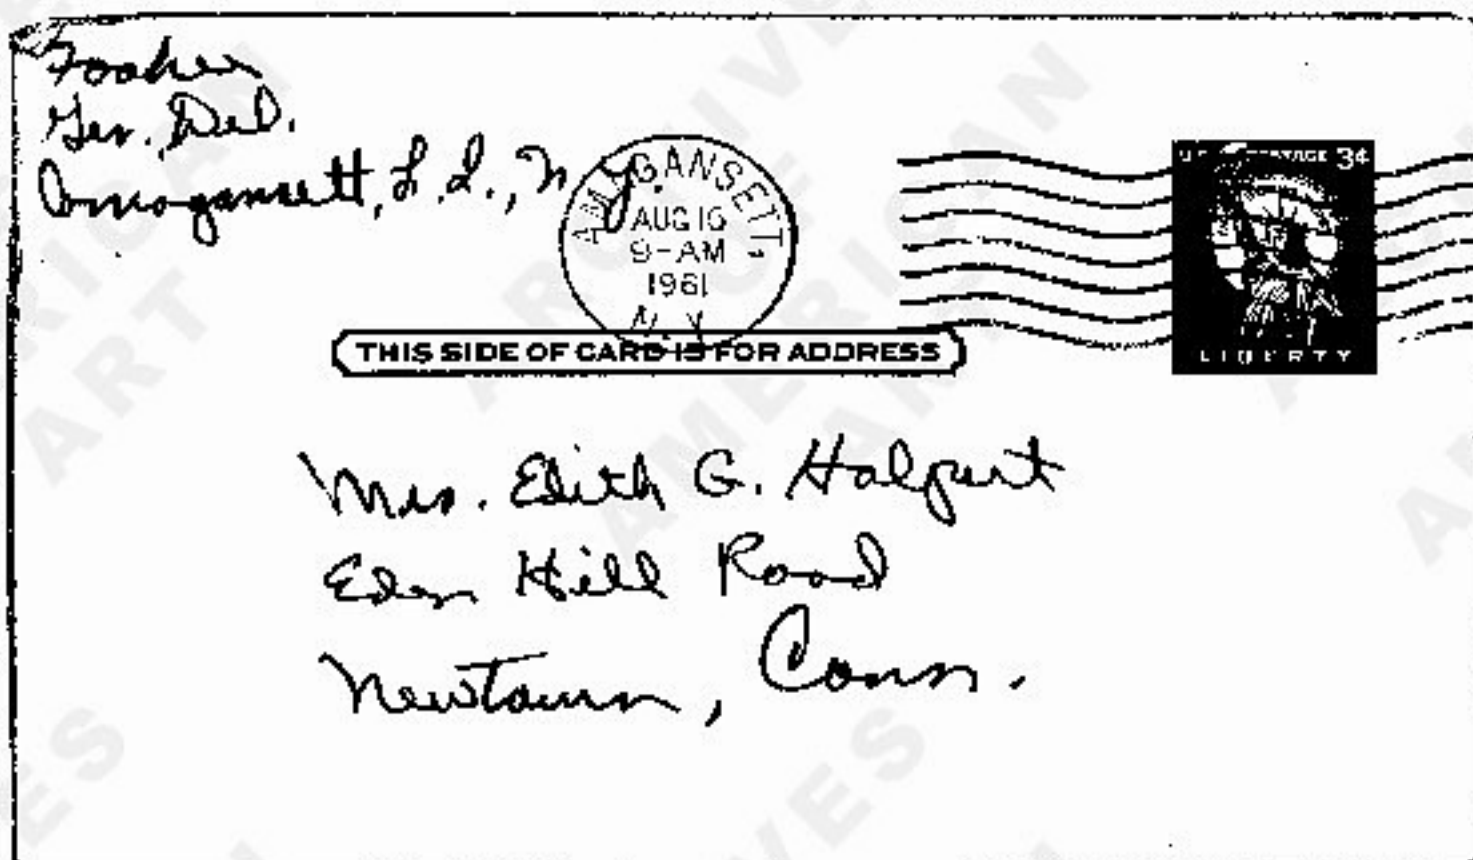 Gen. Del.
Amagansett, L. I., N.Y.
AMAGANSETT
AUG 16
9-AM
1961
N.Y.
U.S. POSTAGE 3¢
LIBERTY
THIS SIDE OF CARD IS FOR ADDRESS
Mrs. Edith G. Halpert
Eden Hill Road
Newtown, Conn.
ARCHIVES OF AMERICAN ART